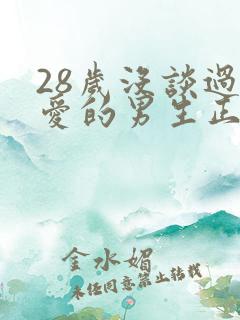 28歲沒談過
愛的男生正
金水媚
未经同意禁止转载